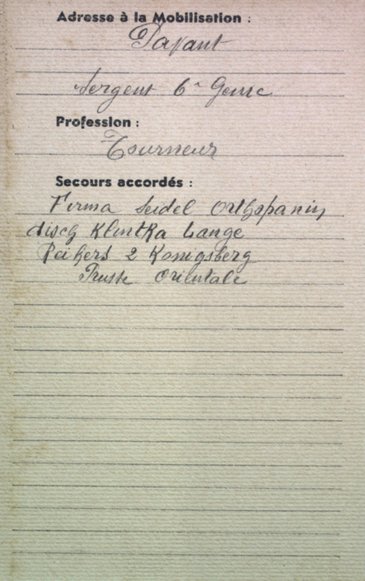 Adresse à la Mobilisation :
Payant
Sergent 6e Genie
Profession :
Tourneur
Secours accordés :
Firma Seidel Orthopanin
disch Klintka Lange
Reihers 2 Konigsberg
Prusse Orientale